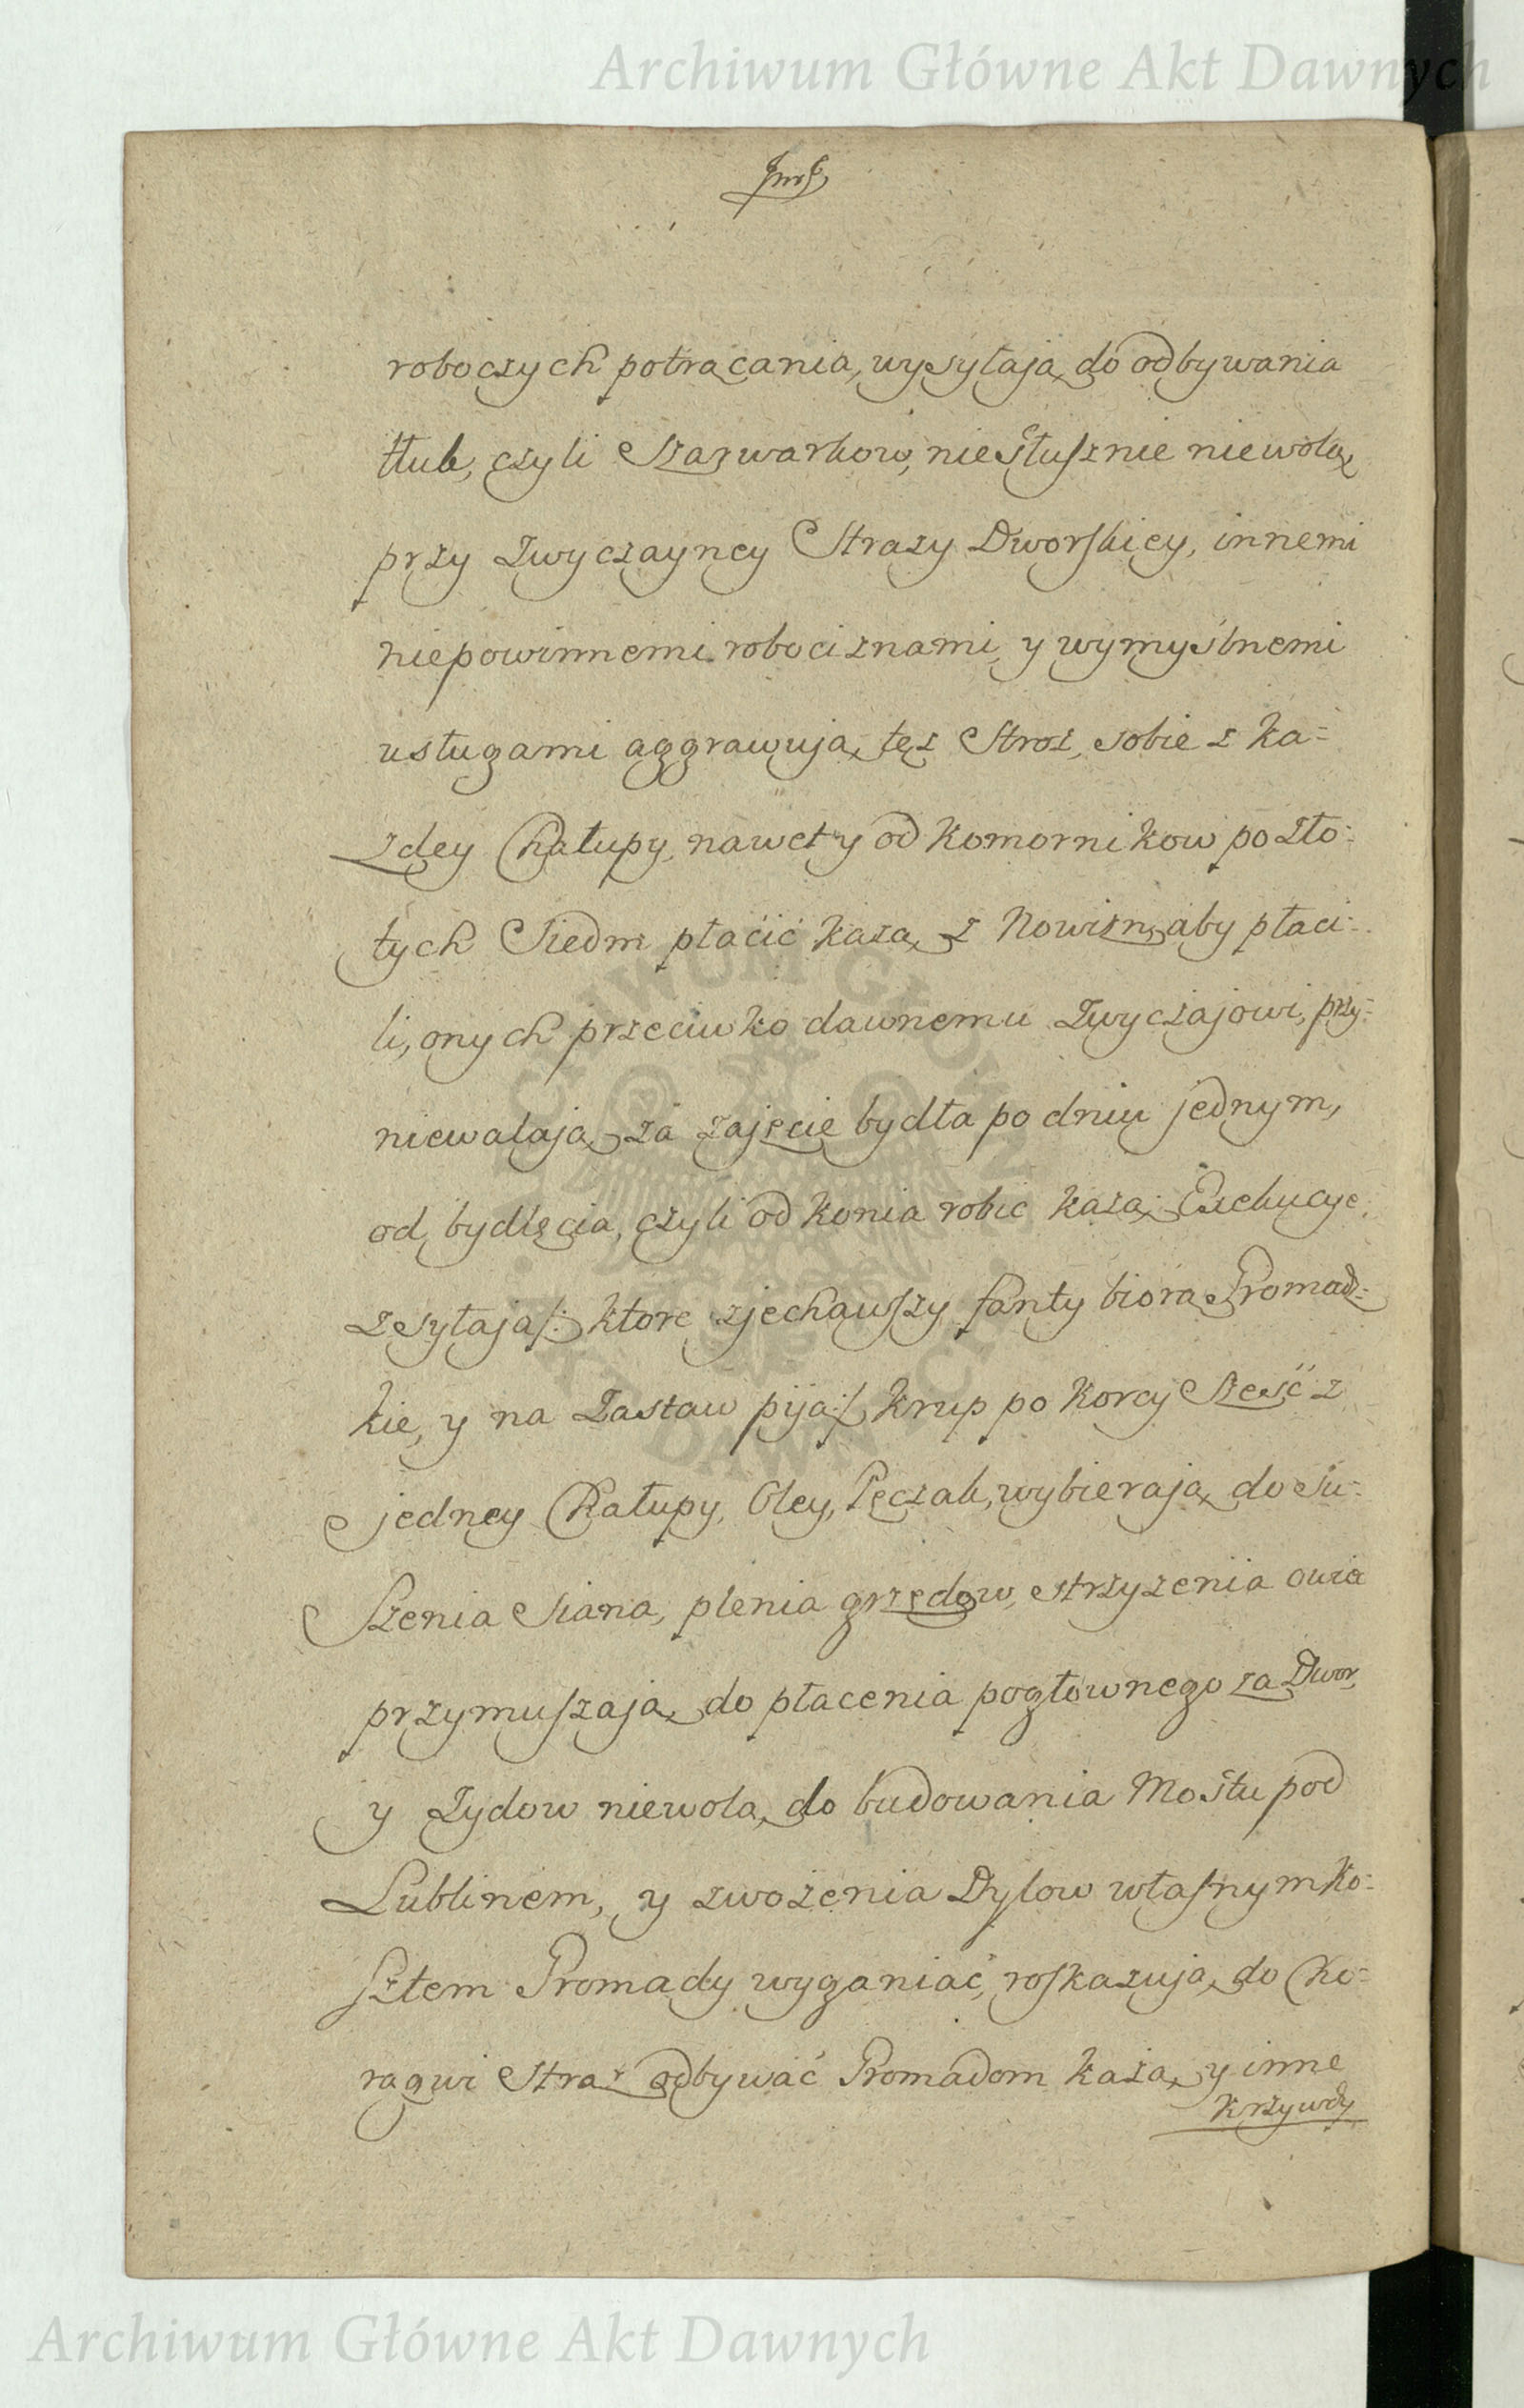 Archiwum Główne Akt Dawnych
roboczych potrącania, wysyłaią do odbywania
tłuk, czyli Szarwarkow, niesłusznie niewolą,
przy Zwyczayney Straży Dworskiey, innemi
niepowinnemi robociznami, y wymyślnemi
usługami aggrawują, tęż Stroż, sobie z ka=
żdey Chałupy, nawet y od Komornikow po Zło=
tych Siedm płacić każą, z Nowizn, aby płaci=
li, onych przeciwko dawnemu Zwyczajowi, przy=
niewalają, za zajęcie bydła po dniu jednym,
od bydlęcia, czyli od konia robić każą, Exekucye
zsyłają /: ktore zjechawszy fanty biorą Gromadz=
kie, y na Zastaw piją :/ krup po korcy Sześć z
jedney Chałupy, Oley, Pęczak, wybierają, do su=
szenia Siana, plenia grzędow, strzyżenia owiec
przymuszają, do płacenia pogłownego za Dwor,
y Żydow niewolą, do budowania Mostu pod
Lublinem, y zwożenia Dylow własnym Ko=
sztem Gromady wyganiać, roskazują, do Cho=
rągwi straż odbywać Gromadom każą, y inne
Krzywdy
Archiwum Główne Akt Dawnych